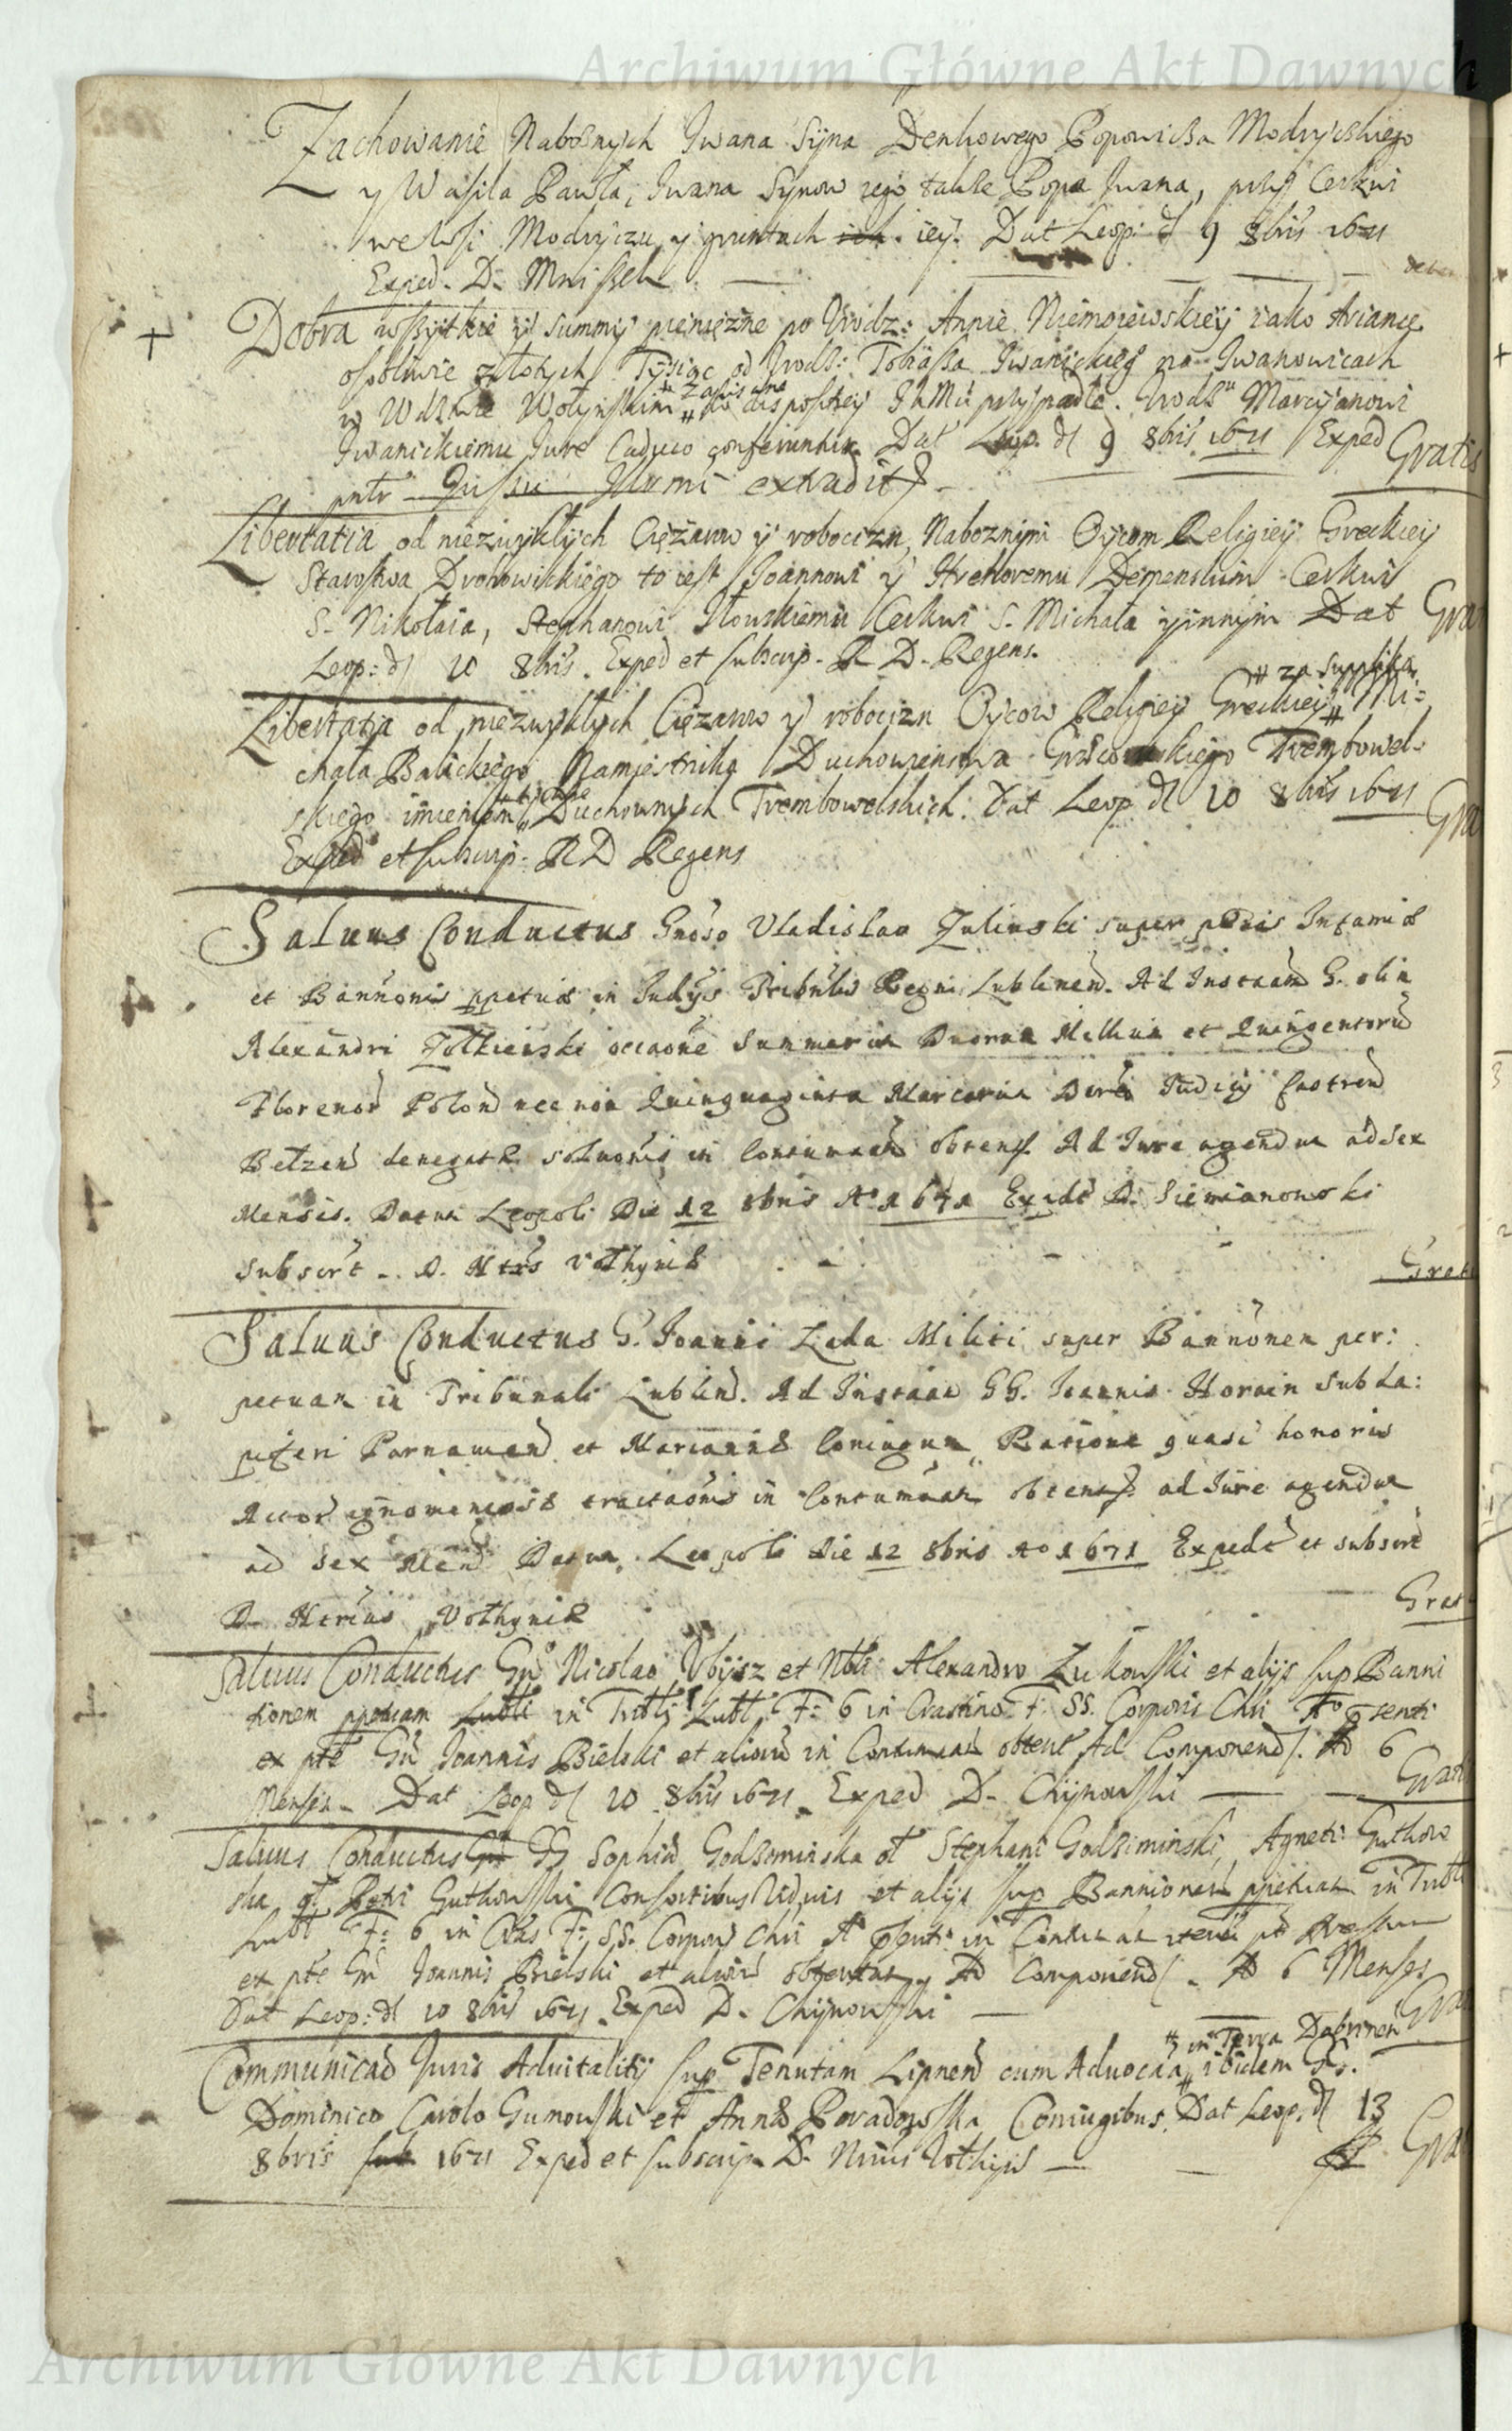 Archiwum Główne Akt Dawnych
Zachowanie Naboznych Iwana Syna Denkowego Popowicza Modryckiego
y Wasila Pawła, Iwana Synow iego także Popa Iwana, przy Cerkwi
we Wsi Modryczu y gruntach ich iey. Dat Leop: d 9 8bris 1671
Exped. D. Mniszek.
+ Dobra wszytkie y summy pieniężne po Urodz: Annie Niemoiewskiey iako Ariance
osobliwie złotych Tysiąc od Urodz: Tobiasza Iwanickieg na Iwanowicach
# zapisane
w Wdztwie Wołynskim # do dispositiey IKMci przypadłe. Urodz Marcyanowi
Iwanickiemu Jure Caduco conferuntur Dat Leop. d 9 8bris 1671 Exped Gratis
pntr Jussu extradit
Libertatia od niezwykłych Ciężarow y robocizn, Naboznym Oycom Religiey Greckiey
Starostwa Drohowickiego to iest Joannowi y Hrehoremu Cerkwi
S. Nikołaia, Stephanowi Cerkwi S. Michała y innym Dat Gra
Leop: d 10 8bris. Exped et subscrip. R D. Regens.
# za suppliką
Libertatia od niezwykłych Ciężarow y robocizn Oycow Religiey Greckiey # Mi=
chała Balickiego Namiestnika Duchowienstwa Trembowel=
skiego imieniem Duchownych Trembowelskich. Dat Leop d 10 8bris 1671 Gra
Exped et subscrip. R D Regens
Saluus Conductus Gnoso Vladislao Zulinski super poenis Infamiae
et Bannonis ppetuae in Judys Tribnlis Regni Lublinen. Ad Instaam G. olim
Alexandri Zołkieuski occaone Summarum Duorum Millium et Quingentorum
Florenor Polon nec non Quinquaginta Marcarum Judicij Castren
Betzen denegatae solutonis in Contumaciam obtent Ad Jure agendum ad sex
Menses. Datum Leopoli Die 12 8bris Ao 1671 Expdt D. Siemianowski
Subscrt. D. Ntrs Vołhyniae
Grat
Saluus Conductus G. Joanni Zada Militi super Bannonem per:
petuam in Tribunali Lublin. Ad Instaam GG. Joannis Horain Subda:
piferi Parnauien et Mariannae Coniugum Ratione quasi honoris
Actor ignominiosae tractaonis in Contumaam obtent ad Jure agendum
ad Sex Men Datum Leopoli Die 12 8bris Ao 1671 Expedt et subscrt
D. Ntrius Vołhyniae
Grat
Saluus Conductus Gno Nicolao Ubysz et Nbli Alexandro Zukowski et alijs sup Banni
tionem ppetuam Lubli in Tribli Lubl F: 6 in Crastino F: SS. Corporis Chri Ao psenti
ex pte Gn Joannis Bielski et aliorum in Contumaam obtent Ad Componend. Ad 6
Menses. Dat Leop d 10 8bris 1671. Exped D. Chynowski Grati
Saluus Conductus Gn GG Sophiae Godzominska ol Stephani Godziminski, Agneti Guthow
ska ol Petri Guthowski Consortibus Viduis et alijs sup Bannionem ppetuam in Tribli
Lubl F: 6 in Cras F: SS. Corporis Chri Ao psenti in
ex pte Gn Joannis Bielski et aliorum obtentam Ad Componend. Ad 6 Menses
Dat Leop: d 10 8bris 1671. Exped D. Chynowski Gra
# in Terra Dobrinen
Communicao Juris Aduitalitij sup Tenutam Lipnen cum Aduocaa # ibidem Gs.
Dominico Carolo Gumowski et Annae Poradowska Coniugibus. Dat Leop. d 13
8bris sub 1671 Exped et subscrip. D. Ntrius Vołhyn Gra
Archiwum Główne Akt Dawnych